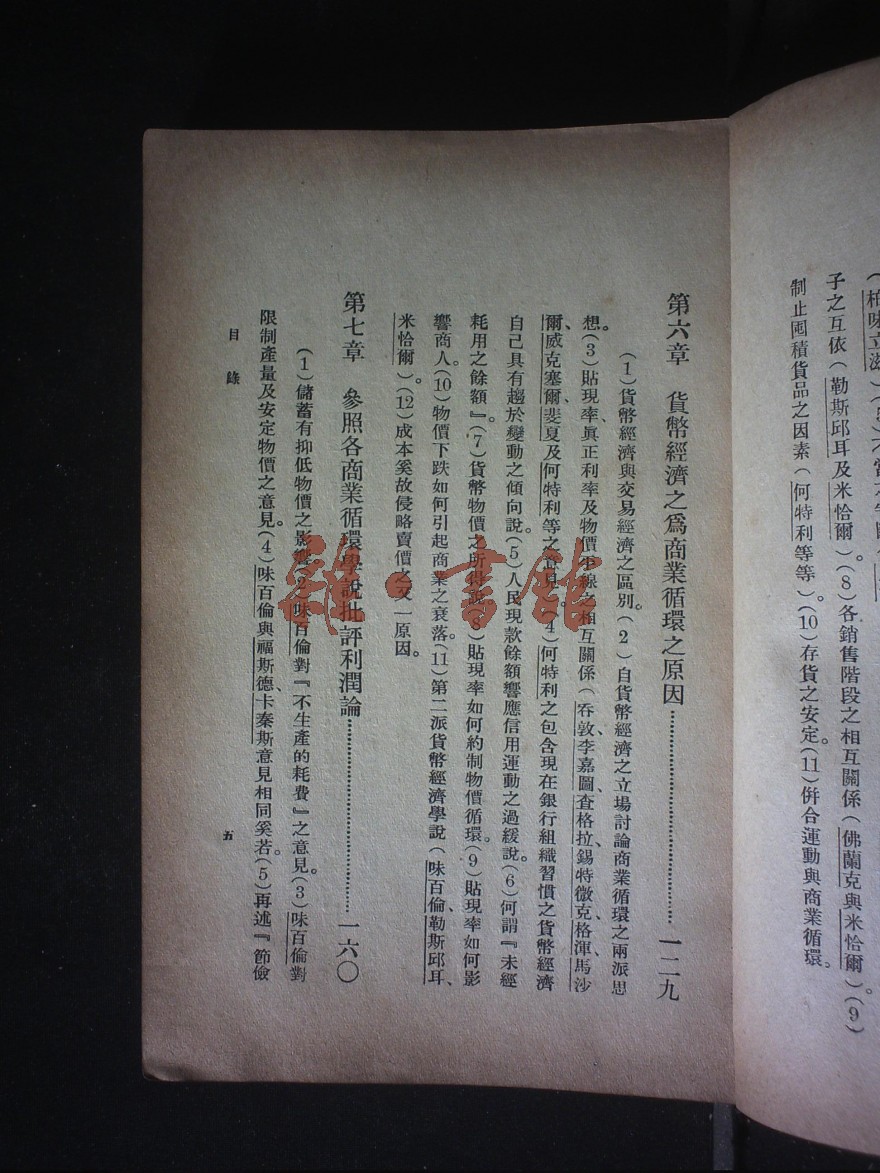 子之互依(勒斯邱耳及米恰爾)。(8)各銷售階段之相互關係(佛蘭克與米恰爾)。(9)
制止囤積貨品之因素(何特利等等)。(10)存貨之安定。(11)併合運動與商業循環。
第六章 貨幣經濟之爲商業循環之原因……一二九
(1)貨幣經濟與交易經濟之區別。(2)自貨幣經濟之立場討論商業循環之兩派思
想。(3)貼現率、眞正利率及物價水線之相互關係(吞敦、李嘉圖、查格拉、錫特微克、格渾、馬沙
爾、威克塞爾、斐夏及何特利等之意見)。(4)何特利之包含現在銀行組織習慣之貨幣經濟
自己具有趨於變動之傾向說。(5)人民現款餘額響應信用運動之過緩說。(6)何謂『未經
耗用之餘額』。(7)貨幣物價之所得說。(8)貼現率如何約制物價循環。(9)貼現率如何影
響商人。(10)物價下跌如何引起商業之衰落。(11)第二派貨幣經濟學說(味百倫、勒斯邱耳、
米恰爾)。(12)成本奚故侵略賣價之又一原因。
第七章 參照各商業循環學說批評利潤論……一六〇
(1)儲蓄有抑低物價之影響。(2)味百倫對『不生產的耗費』之意見。(3)味百倫對
限制產量及安定物價之意見。(4)味百倫與福斯德、卡秦斯意見相同奚若。(5)再述『節儉
目錄
五
雜·書館